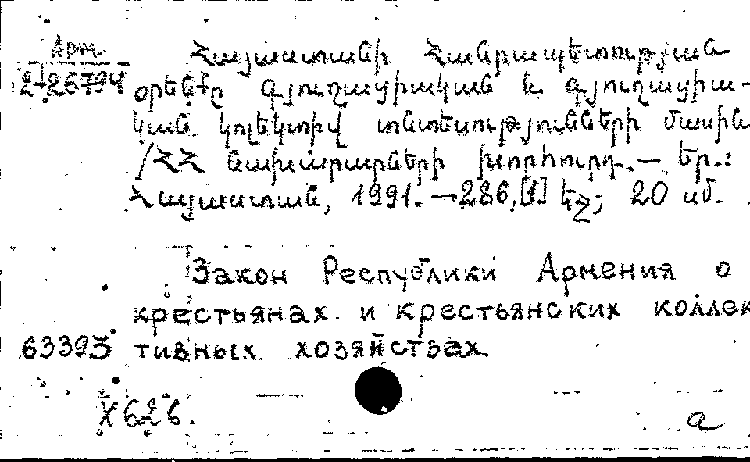 Арм.
2-26794
Հայաստանի Հանրապետության
օրենքը գյուղացիական և գյուղացիա-
կան կոլեկտիվ տնտեսությունների մասին
/ՀՀ նախարարների խորհուրդ.— Եր.:
Հայաստան, 1991.—286,[1] էջ; 20 սմ.
Закон Республики Армения о
крестьянах и крестьянских коллек
63393 тивных хозяйствах
X626.
а